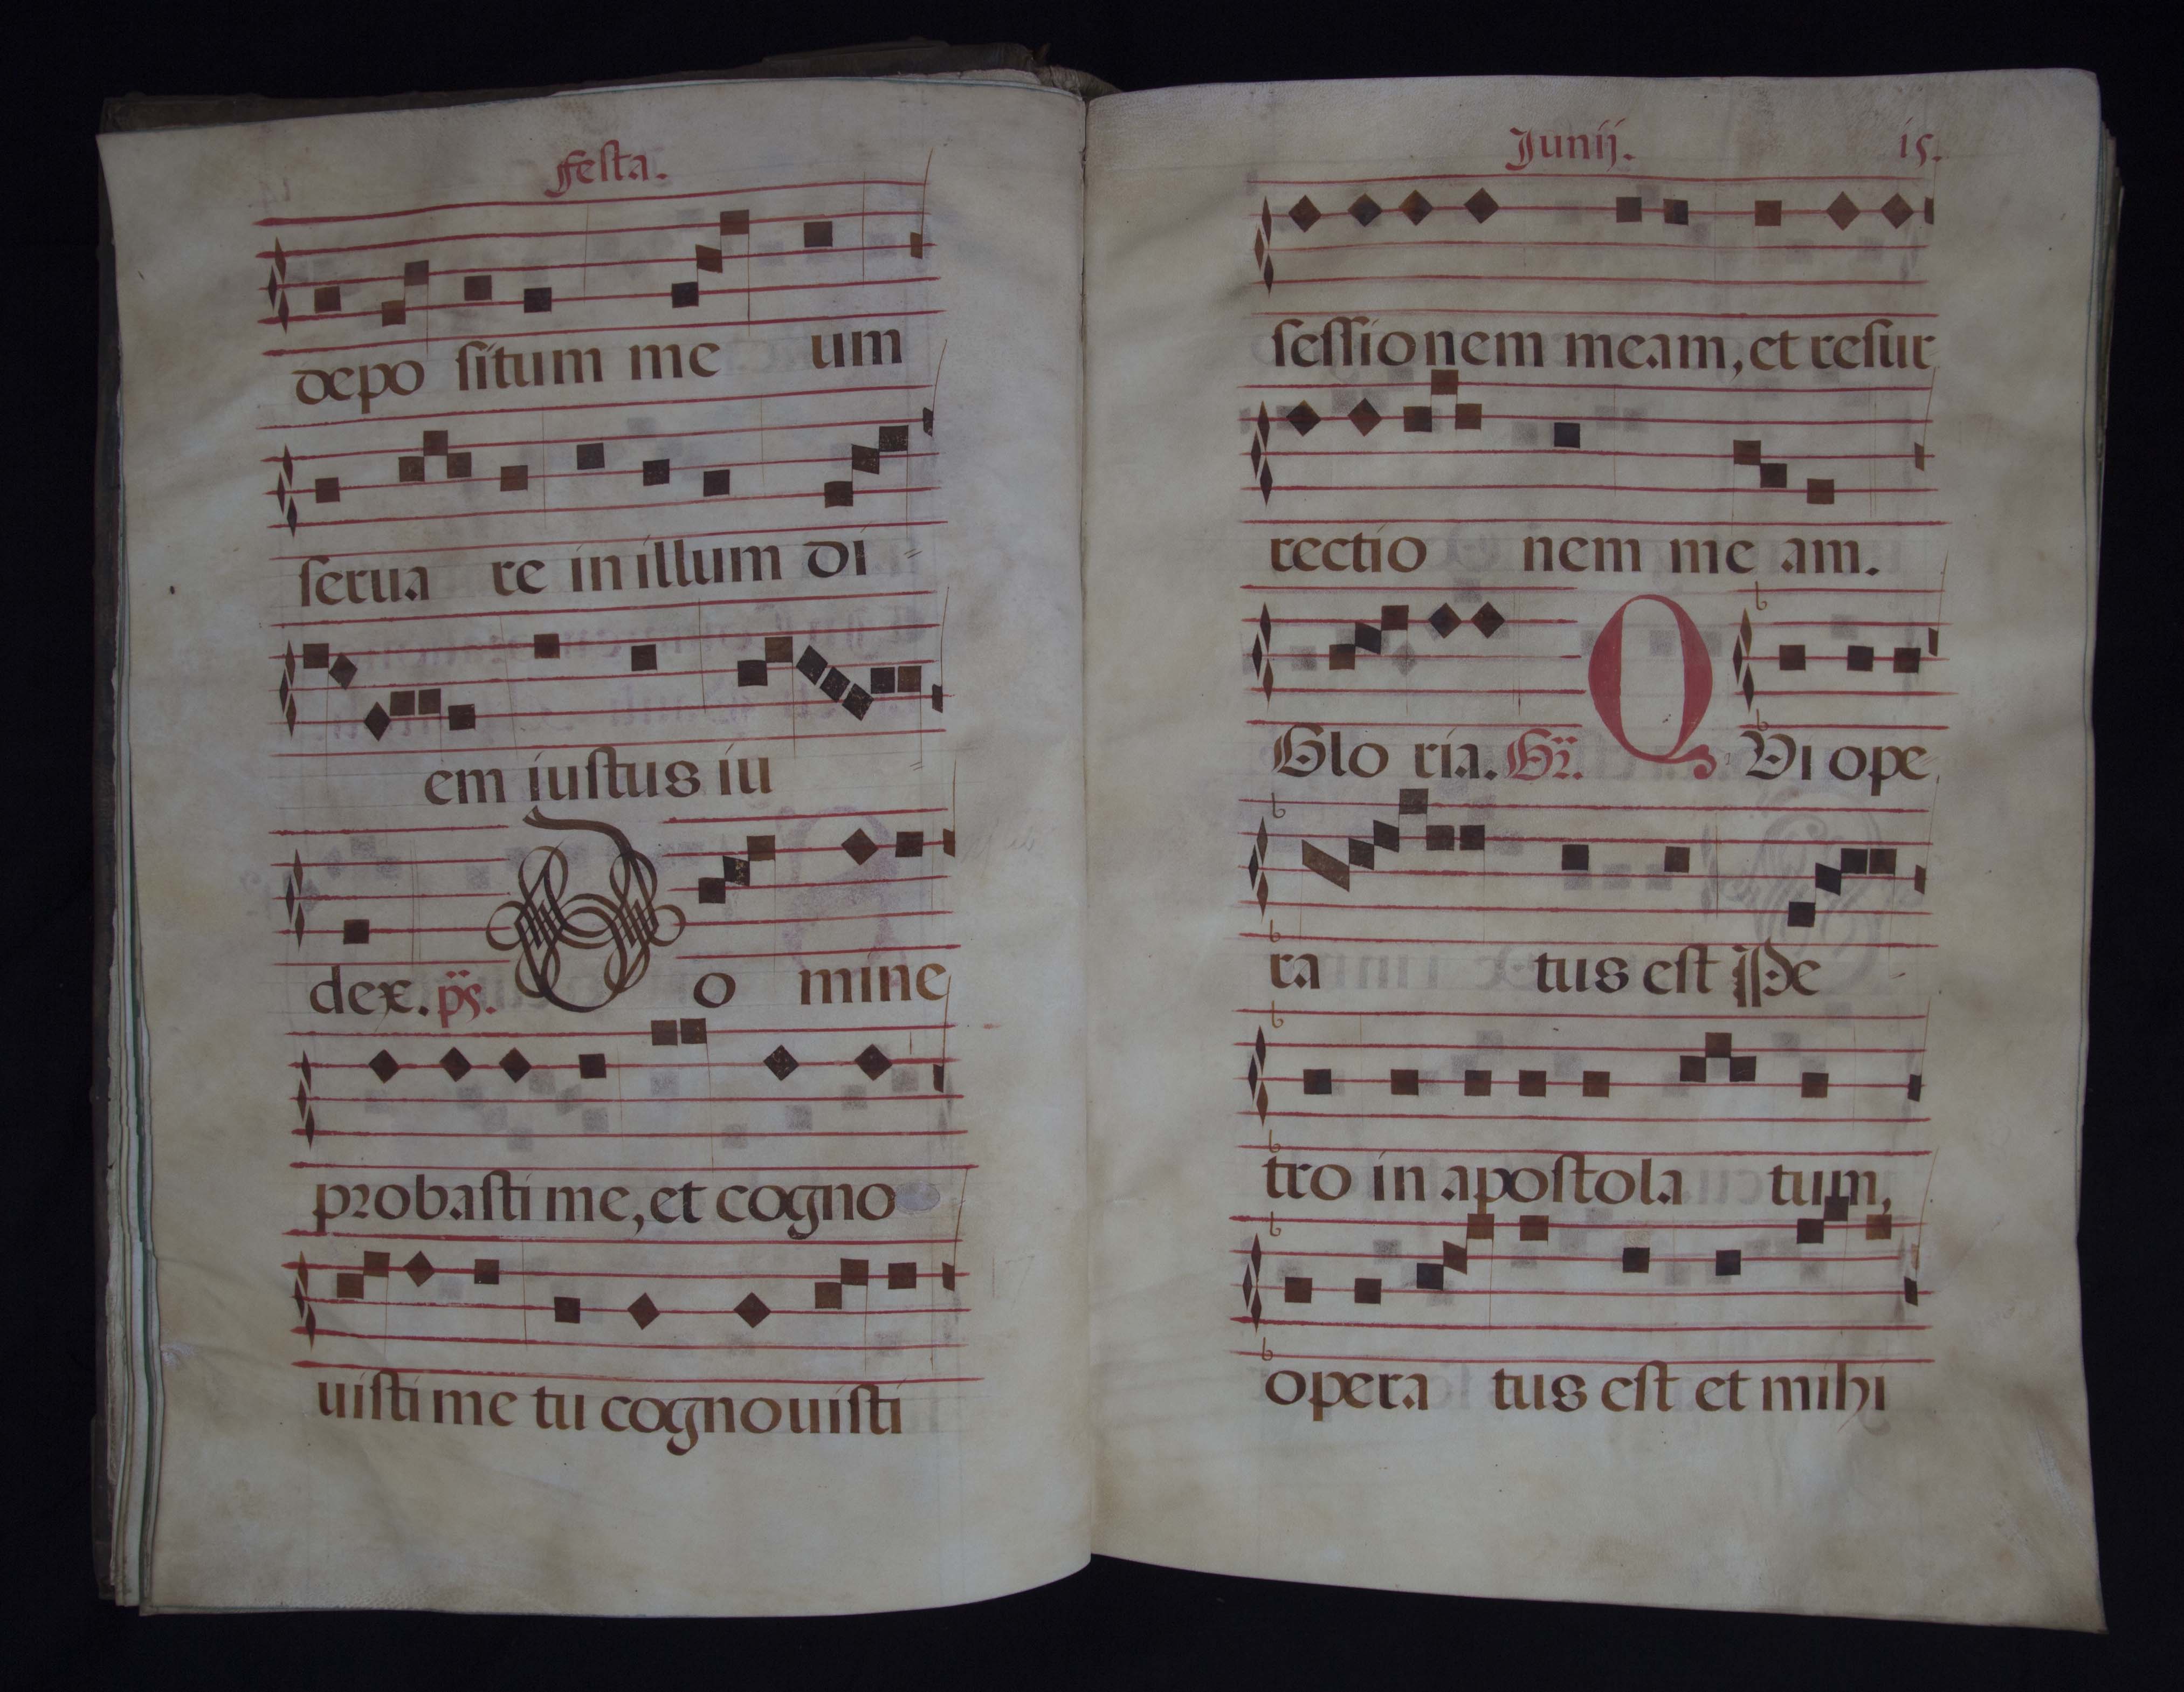 Festa.
depo situm me um
serua re in illum di
em iustus iu
dex. ps. Do mine
probasti me, et cogno
uisti me tu cognouisti
Junij. 15.
sessionem meam, et resur
rectio nem me am.
Glo ria. Gr. QVi ope
ra tus est Pe
tro in apostola tum,
opera tus est et mihi